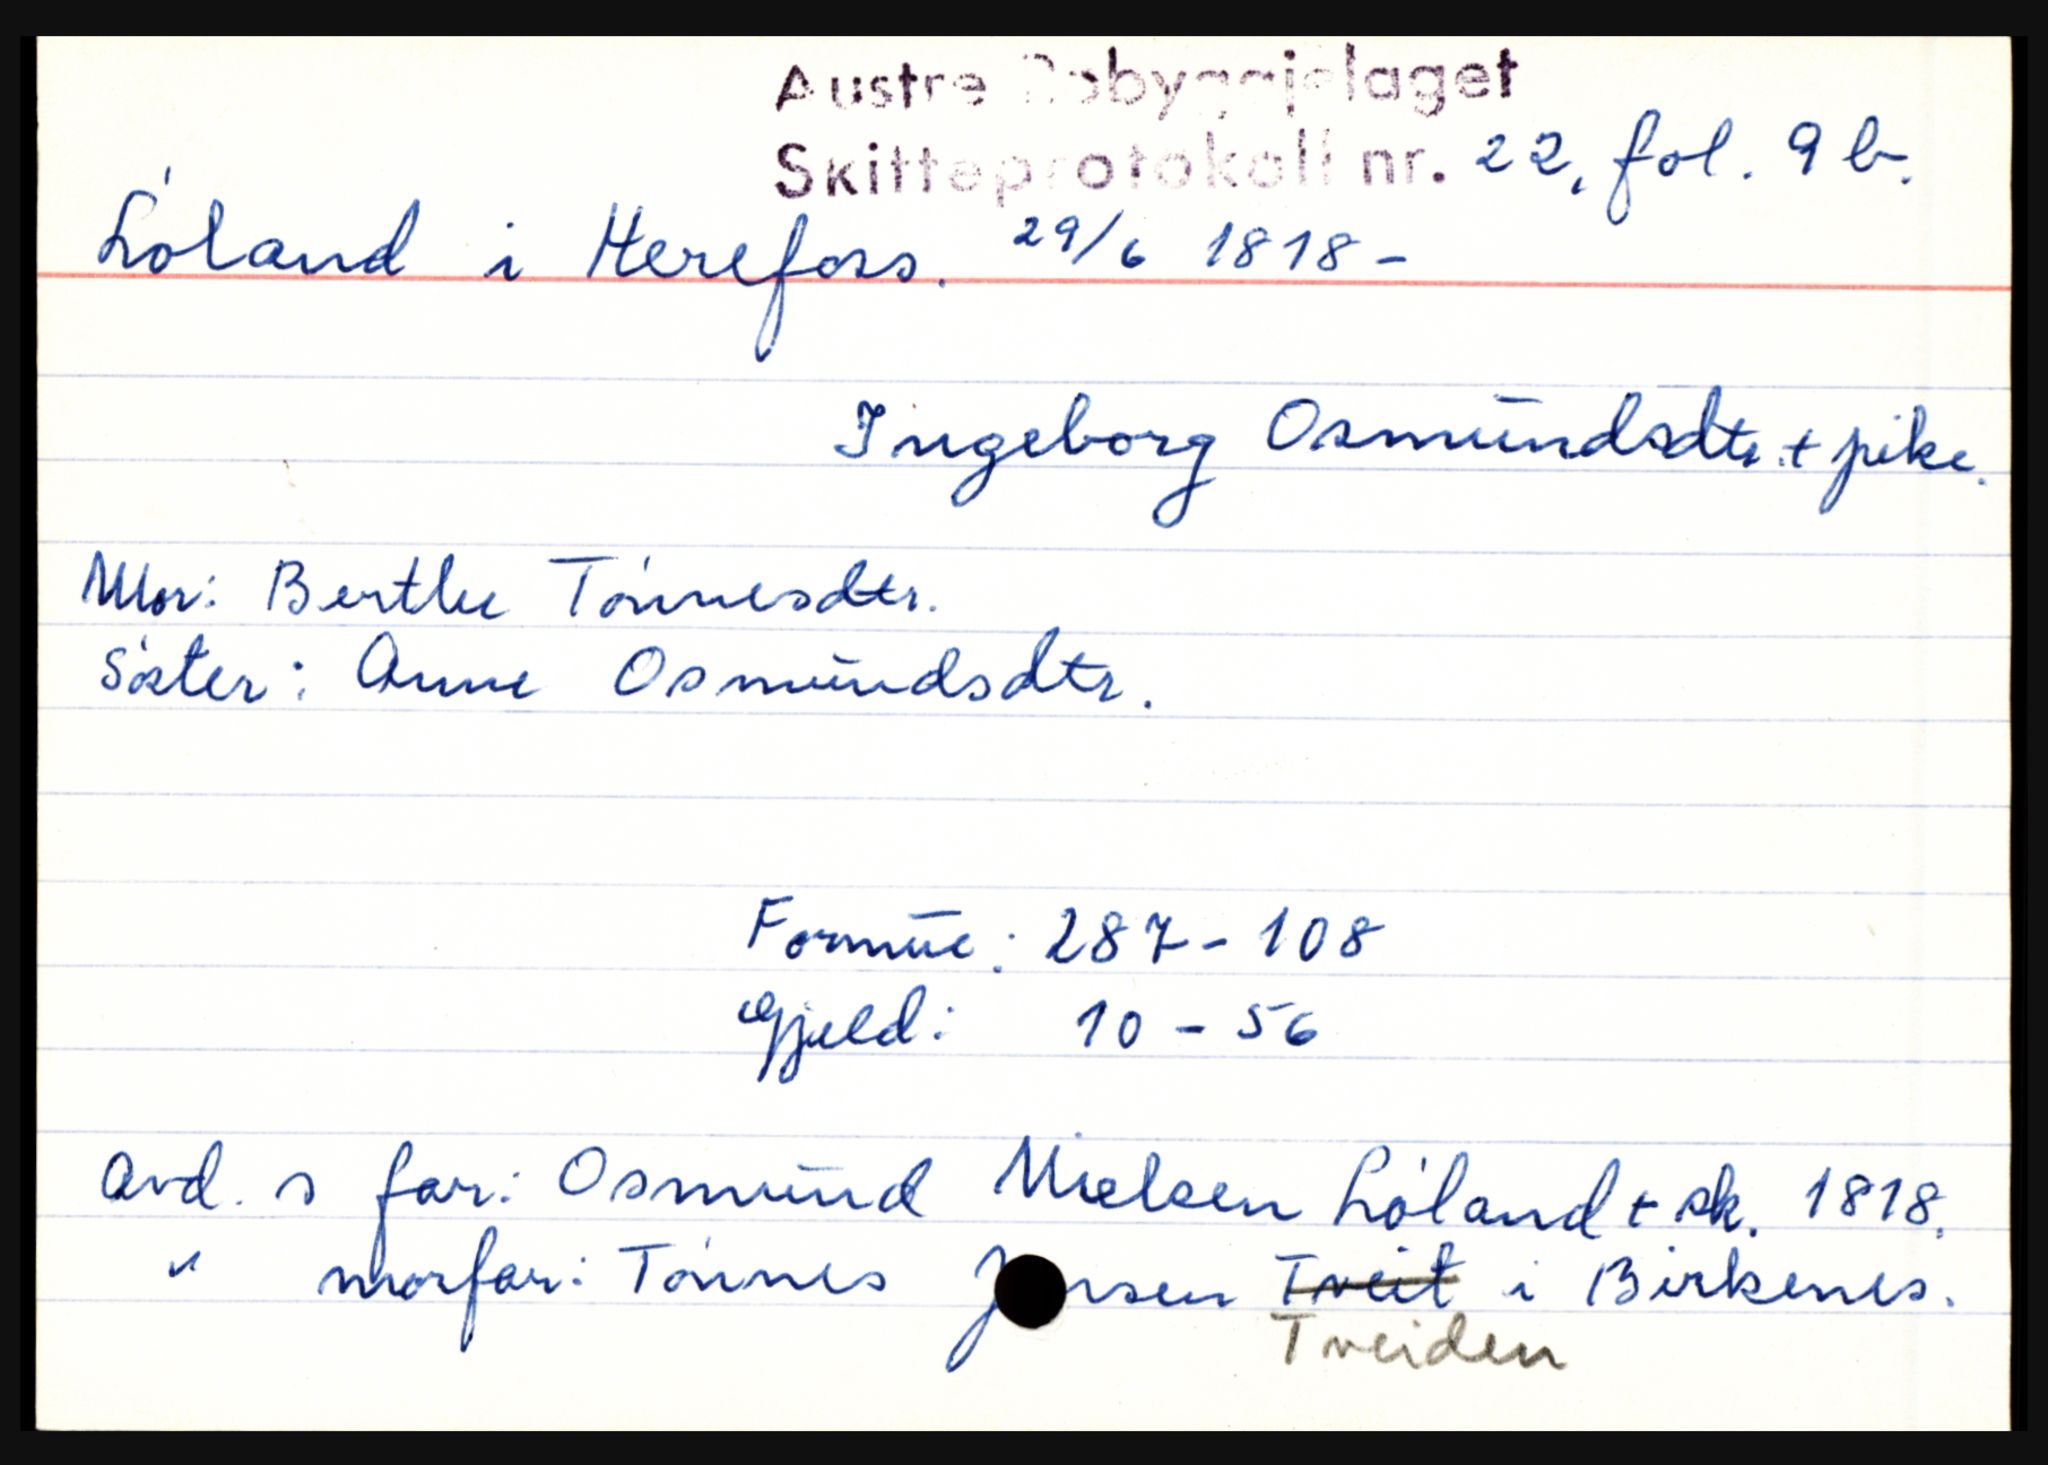 Austre Robyggjelaget
Skifteprotokoll nr. 22, fol. 9 b.
Lóland i Herefoss. 29/6 1818 -
Ingeborg Osmundsdtr. + pike.
Mor: Berthe Tónnesdtr.
Sóster: Anne Osmundsdtr.
Formue: 287 - 108
Gjeld: 10 - 56
Avd. s far: Osmund Nielsen Lóland + sk. 1818.
" morfar: Tónnes Tveit i Birkenes.
Tveiden